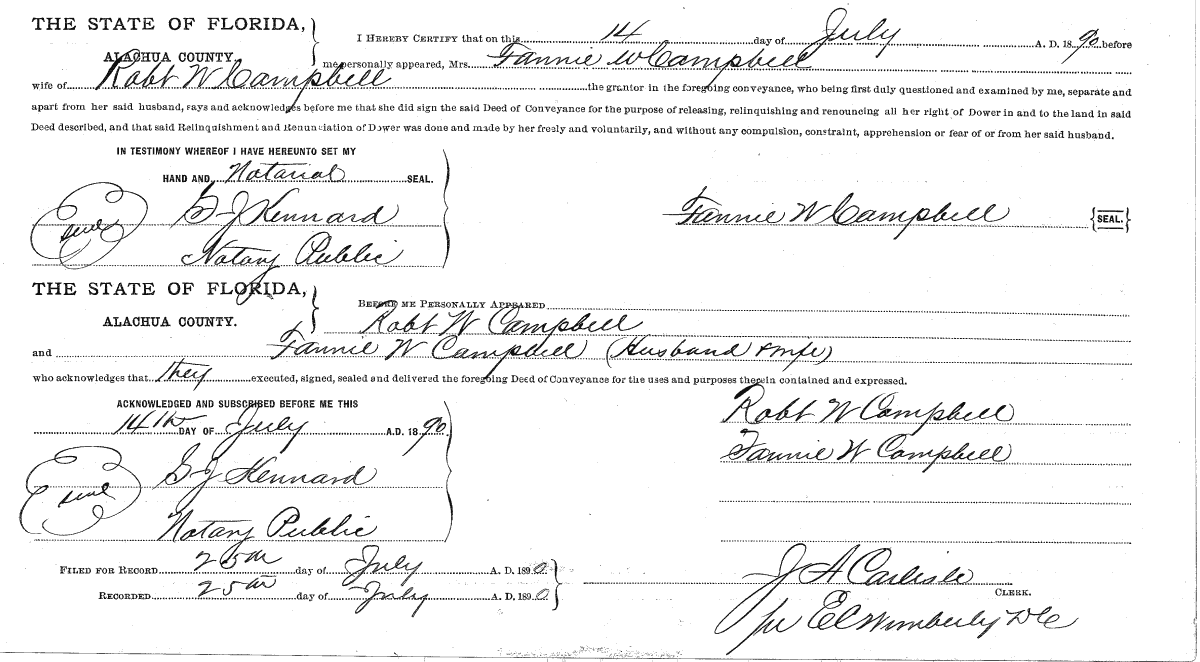 THE STATE OF FLORIDA,
ALACHUA COUNTY.
I HEREBY CERTIFY that on this 14 day of July A. D. 1890 before
me personally appeared, Mrs. Fannie W Campbell
wife of Robt W Campbell the grantor in the foregoing conveyance, who being first duly questioned and examined by me, separate and
apart from her said husband, says and acknowledges before me that she did sign the said Deed of Conveyance for the purpose of releasing, relinquishing and renouncing all her right of Dower in and to the land in said
Deed described, and that said Relinquishment and Renunciation of Dower was done and made by her freely and voluntarily, and without any compulsion, constraint, apprehension or fear of or from her said husband.
IN TESTIMONY WHEREOF I HAVE HEREUNTO SET MY
HAND AND Notarial SEAL.
Seal G J Kennard
Notary Public
Fannie W Campbell {SEAL.}
THE STATE OF FLORIDA,
ALACHUA COUNTY.
BEFORE ME PERSONALLY APPEARED
Robt W Campbell
and Fannie W Campbell (Husband & wife)
who acknowledges that they executed, signed, sealed and delivered the foregoing Deed of Conveyance for the uses and purposes therein contained and expressed.
ACKNOWLEDGED AND SUBSCRIBED BEFORE ME THIS
14th DAY OF July A.D. 1890
Seal G J Kennard
Notary Public
Robt W Campbell
Fannie W Campbell
FILED FOR RECORD 25th day of July A. D. 1890
RECORDED 25th day of July A. D. 1890
J A Carlisle
CLERK.
per E C Wimberly D C